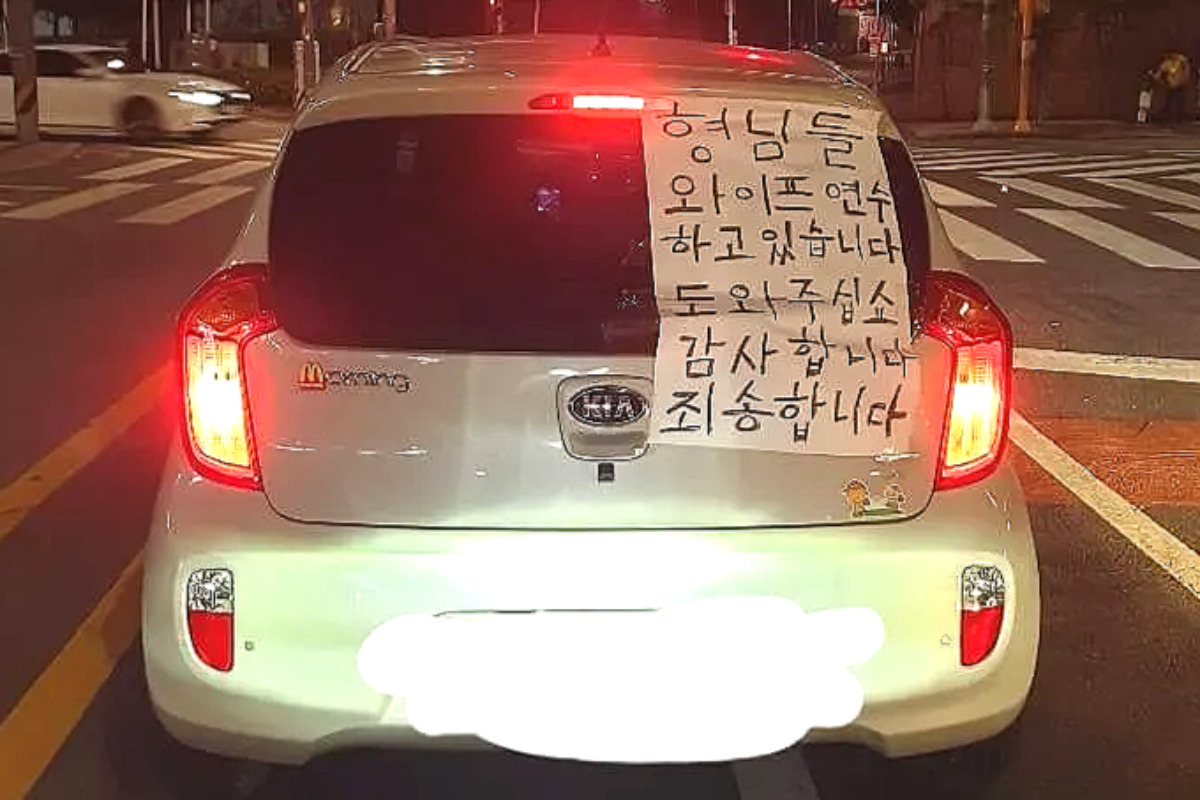 형님들
와이프연수
하고있습니다
도와주십쇼
감사합니다
죄송합니다
Morning
KIA